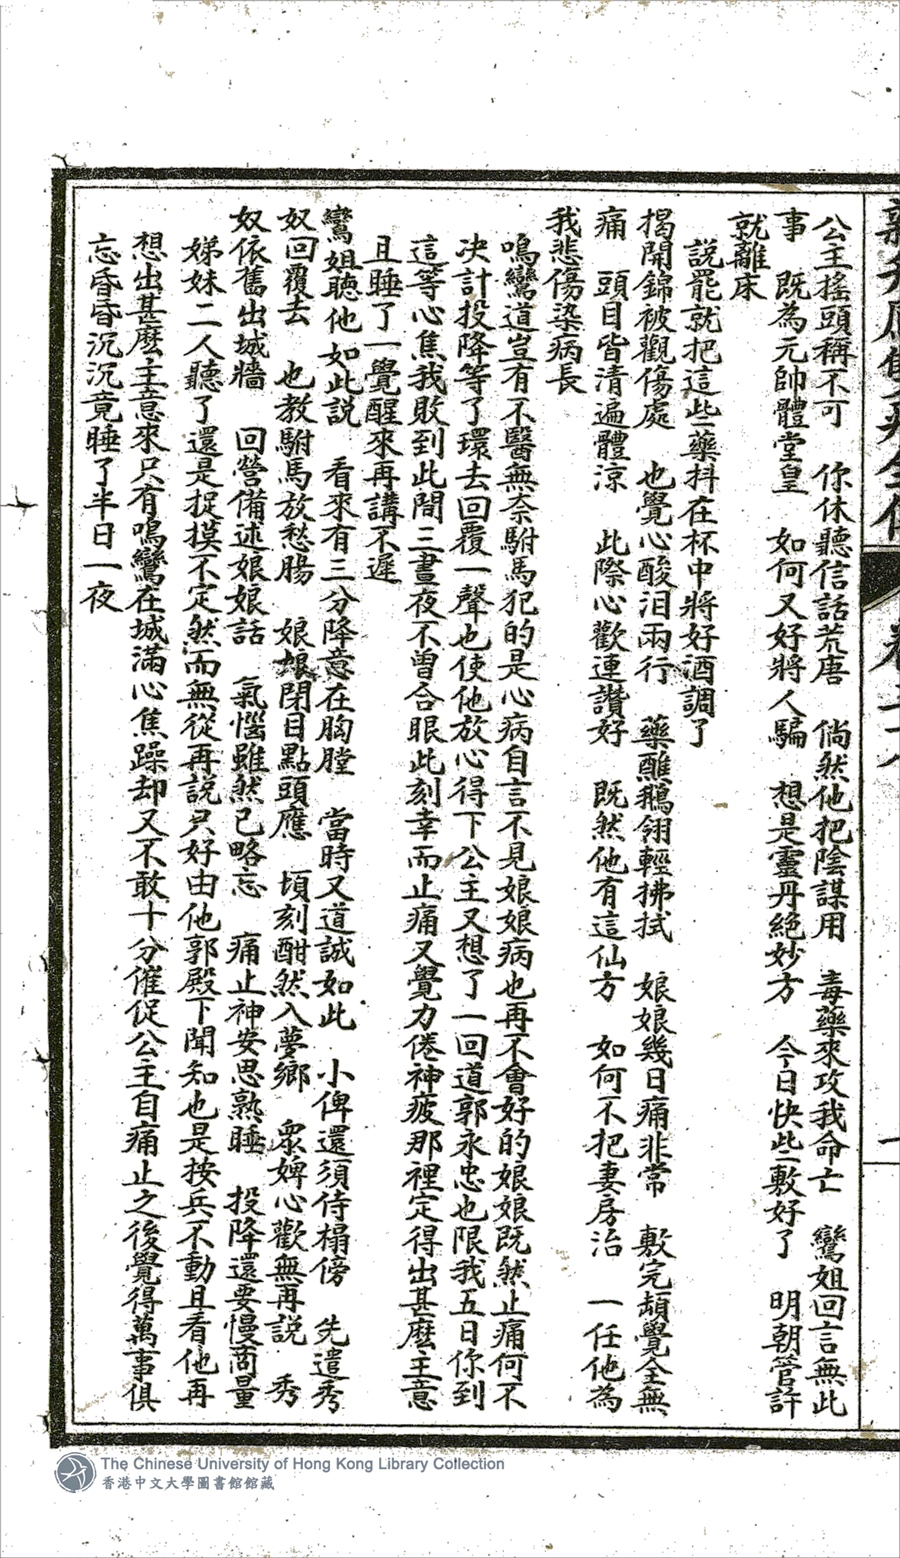 公主搖頭稱不可　你休聽信話荒唐　倘然他把陰謀用　毒藥來攻我命亡　鸞姐回言無此
事　既為元帥體堂皇　如何又好將人騙　想是靈丹絕妙方　今日快些敷好了　明朝管許
就離床
說罷就把這些藥抖在杯中將好酒調了
揭開錦被觀傷處　也覺心酸泪兩行　藥蘸鵝翎輕拂拭　娘娘幾日痛非常　敷完頓覺全無
痛　頭目皆清遍體涼　此際心歡連讚好　既然他有這仙方　如何不把妻房治　一任他為
我悲傷染病長
鳴鸞道豈有不醫無奈駙馬犯的是心病自言不見娘娘病也再不會好的娘娘既然止痛何不
決計投降等了環去回覆一聲也使他放心得下公主又想了一回道郭永忠也限我五日你到
這等心焦我敗到此間三晝夜不曾合眼此刻幸而止痛又覺力倦神疲那裡定得出甚麽主意
且睡了一覺醒來再講不遲
鸞姐聽他如此說　看來有三分降意在胸膛　當時又道誠如此　小俾還須侍榻傍　先遣秀
奴回覆去　也教駙馬放愁腸　娘娘閉目點頭應　頃刻酣然入夢鄉　衆婢心歡無再說　秀
奴依舊出城牆　回營備述娘娘話　氣惱雖然已略忘　痛止神安思熟睡　投降還要慢商量
娣妹二人聽了還是捉摸不定然而無從再說只好由他郭殿下聞知也是按兵不動且看他再
想出甚麽主意來只有鳴鸞在城滿心焦躁却又不敢十分催促公主自痛止之後覺得萬事俱
忘昏昏沉沉竟睡了半日一夜
The Chinese University of Hong Kong Library Collection
香港中文大學圖書館館藏